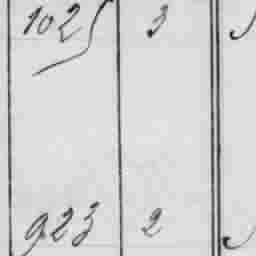 1025 3
923 2